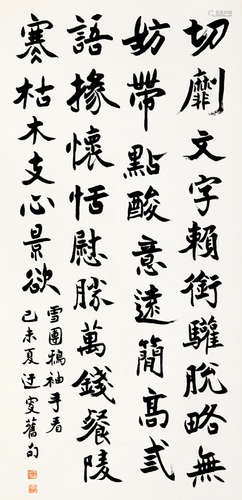 切劘文字賴銜驩脫略無
妨帶點酸意遠簡高貳
語掾懷恬慰勝萬錢餐陵
寒枯木支心景欲
雪團揭袖手看
己未夏迂叟舊句